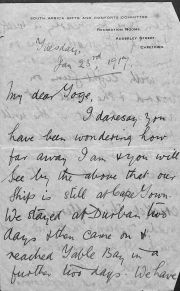 SOUTH AFRICA GIFTS AND COMFORTS COMMITTEE
RECREATION ROOMS
ADDERLEY STREET
CAPETOWN
Tuesday,
Jan 23rd 1917
My dear
I daresay you
have been wondering how
far away I am & you will
See by the above that our
Ship is still at Cape Town.
We stayed at Durban two
days & then came on &
reached Table Bay in a
further two days. We have